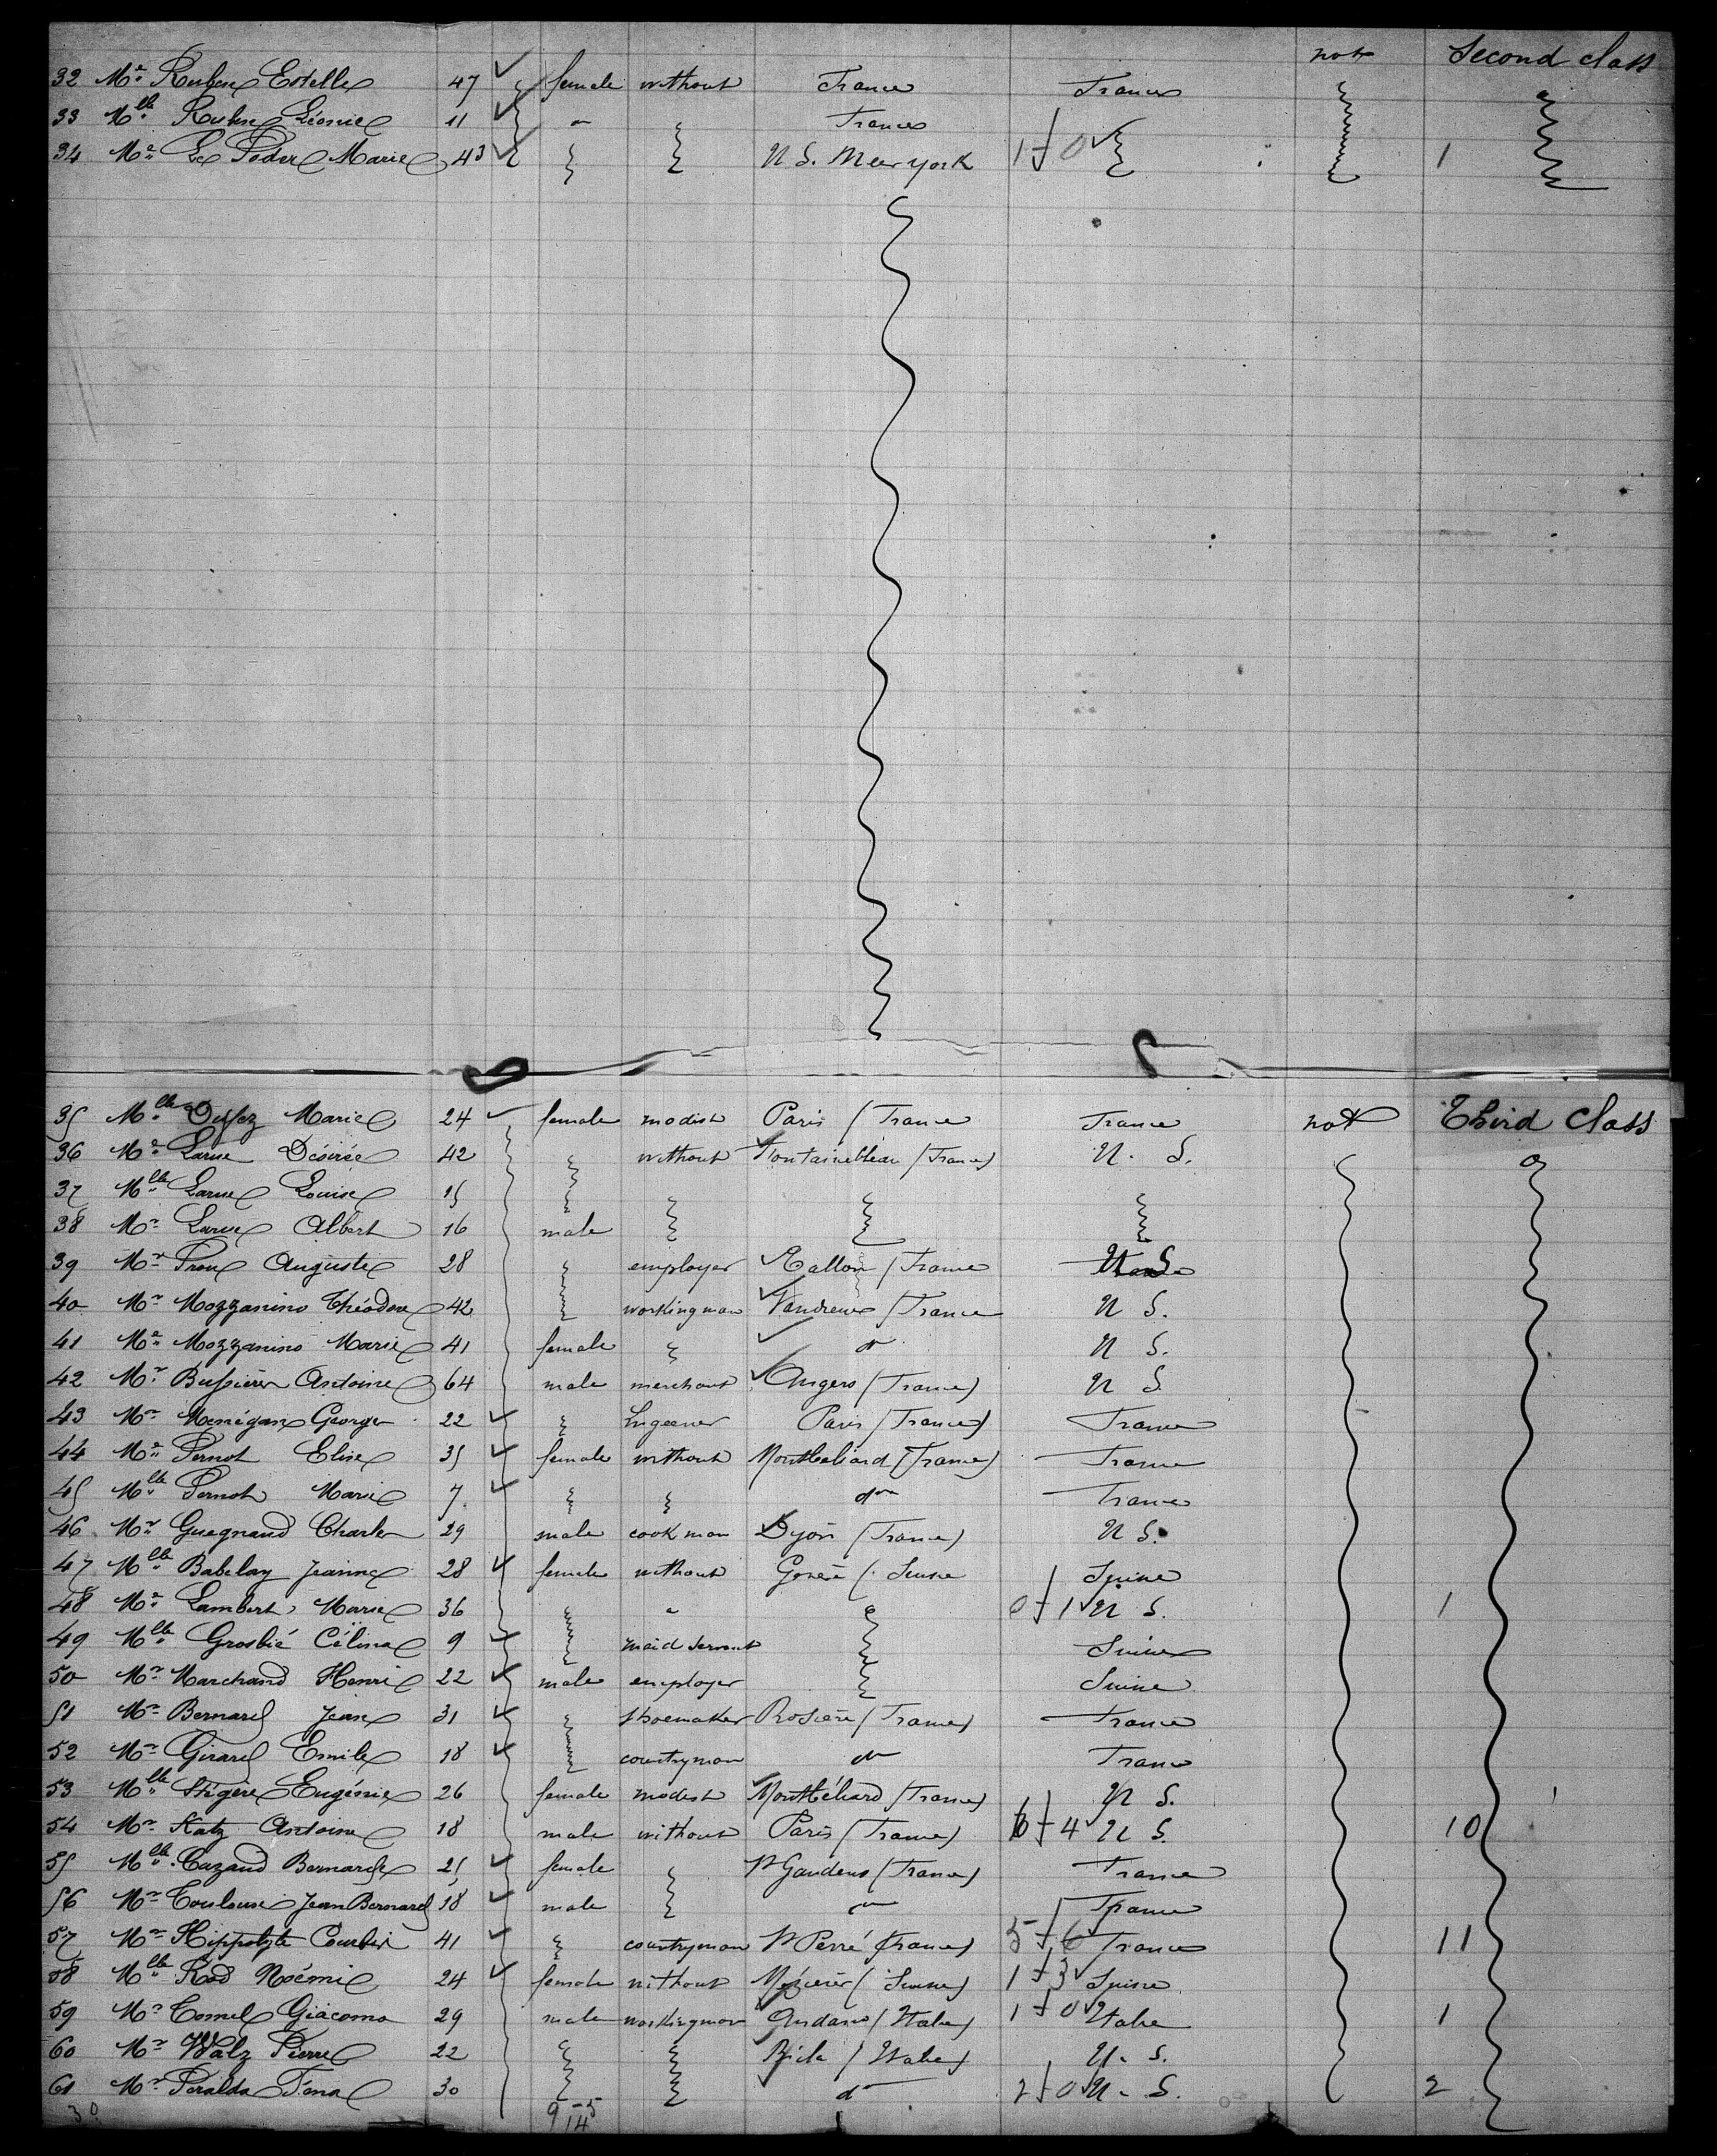 not Second class
32 Me Ruben Estelle 47 female without France France
33 Mlle Ruben Léonie 11 " France
34 Me Le Poder Marie 43 U S. New york 1 + 0 1
35 Mlle Marie 24 female modist Paris (France France not Third Class
36 Me Larue Désirée 42 without Fontainebleau (France) U. S.
37 Mlle Larue Louise 15
38 Mr Larue Albert 16 male
39 Mr Proux Auguste 28 employer (France U S.
40 Mr Mozzanino Théodore 42 workingman (France U S.
41 Me Mozzanino Marie 41 female do U S.
42 Mr Bussière Antoine 64 male merchant Angers (France) U S
43 Mr Menégan George 22 Ingeener Paris (France) France
44 Me Pernot Elise 35 female without Montbeliard (France) France
45 Mlle Pernot Marie 7 do France
46 Mr Guegnaud Charles 29 male cook man Dyon (France) U S.
47 Mlle Babelay Jeanne 28 female without (Suisse Suisse
48 Me Lambert Marie 36 " 0 + 1 U S. 1
49 Mlle Grosbié Célina 9 maid servant Suisse
50 Mr Marchand Henri 22 male employer Suisse
51 Mr Bernard Jean 31 shoemaker Rosière (France) France
52 Mr Girard Emile 18 countryman do France
53 Mlle Stigère Eugénie 26 female modist Montbéliard (France) U S.
54 Mr Katz Antoine 18 male without Paris (France) 6 + 4 U S. 10
55 Mlle Cazaud Bernarde 25 female St Gaudens (France) France
56 Mr Toulouse Jean Bernard 18 male do France
57 Mr Hippolyte Courbix 41 countryman St Perré (France) 5 + 6 France 11
58 Mlle Rod Noémie 24 female without Mézières (Suisse) 1 + 3 Suisse
59 Mr Comel Giacomo 29 male workingman Andano (Italie) 1 + 0 Italie 1
60 Mr Walz Pierre 22 (Italie) U. S.
61 Mr Peralda Téna 30 do 2 + 0 U. S. 2
30 9 15
14